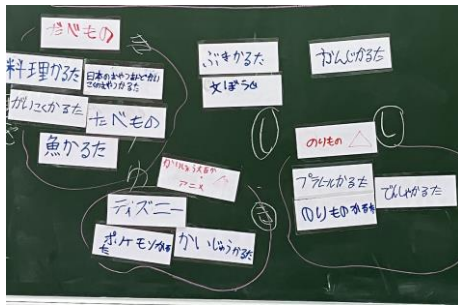 たべもの
料理かるた
日本のおやつ
かるた
がいこくかるた
たべもの
魚かるた
ぶきかるた
文ぼうぐ
かんじかるた
のりもの △
プラレールかるた
でんしゃかるた
のりものかるた
アニメ
ディズニー
ポケモンかるた
かいじゅうかるた